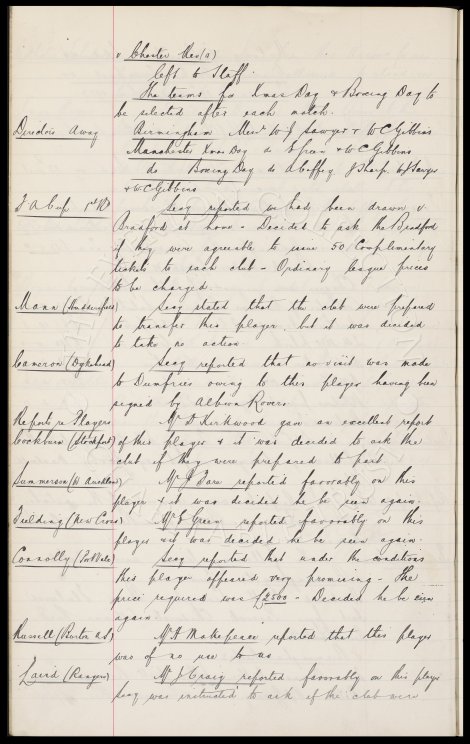 v Chester Res (a)
Left to Staff.
The teams for Xmas Day & Boxing Day to
be selected after each match.
Directors Away Birmingham Messrs W J Sawyer & W C Gibbins
Manchester Xmas Day do E Green & W C Gibbins
do Boxing Day do A Gaffey J Sharp W J Sawyer
& W C Gibbins
F A Cup 1st Rd Secy reported we had been drawn v
Bradford at home - Decided to ask the Bradford
if they were agreeable to issue 50 Complimentary
tickets to each club - Ordinary league prices
to be charged.
Mann (Huddersfield) Secy stated that the club were prepared
to transfer this player, but it was decided
to take no action.
Cameron (Dykehead) Secy reported that no visit was made
to Dumfries owing to this player having been
signed by Albion Rovers.
Reports re Players Mr D Kirkwood gave an excellent report
Cockburn (Stockport) of this player & it was decided to ask the
club if they were prepared to part
Summerson (B Auckland) Mr reported favorably on this
player & it was decided he be seen again.
Fielding (New Cross) Mr E Green reported favorably on this
player & it was decided he be seen again.
Connolly (Port Vale) Secy reported that under the conditions
this player appeared very promising - The
price required was £2500 - Decided he be seen
again.
Russell (Burton a.S) Mr H Makepeace reported that this player
was of no use to us
Laird (Rangers) Mr J Craig reported favorably on this player
Secy was instructed to ask if the club were